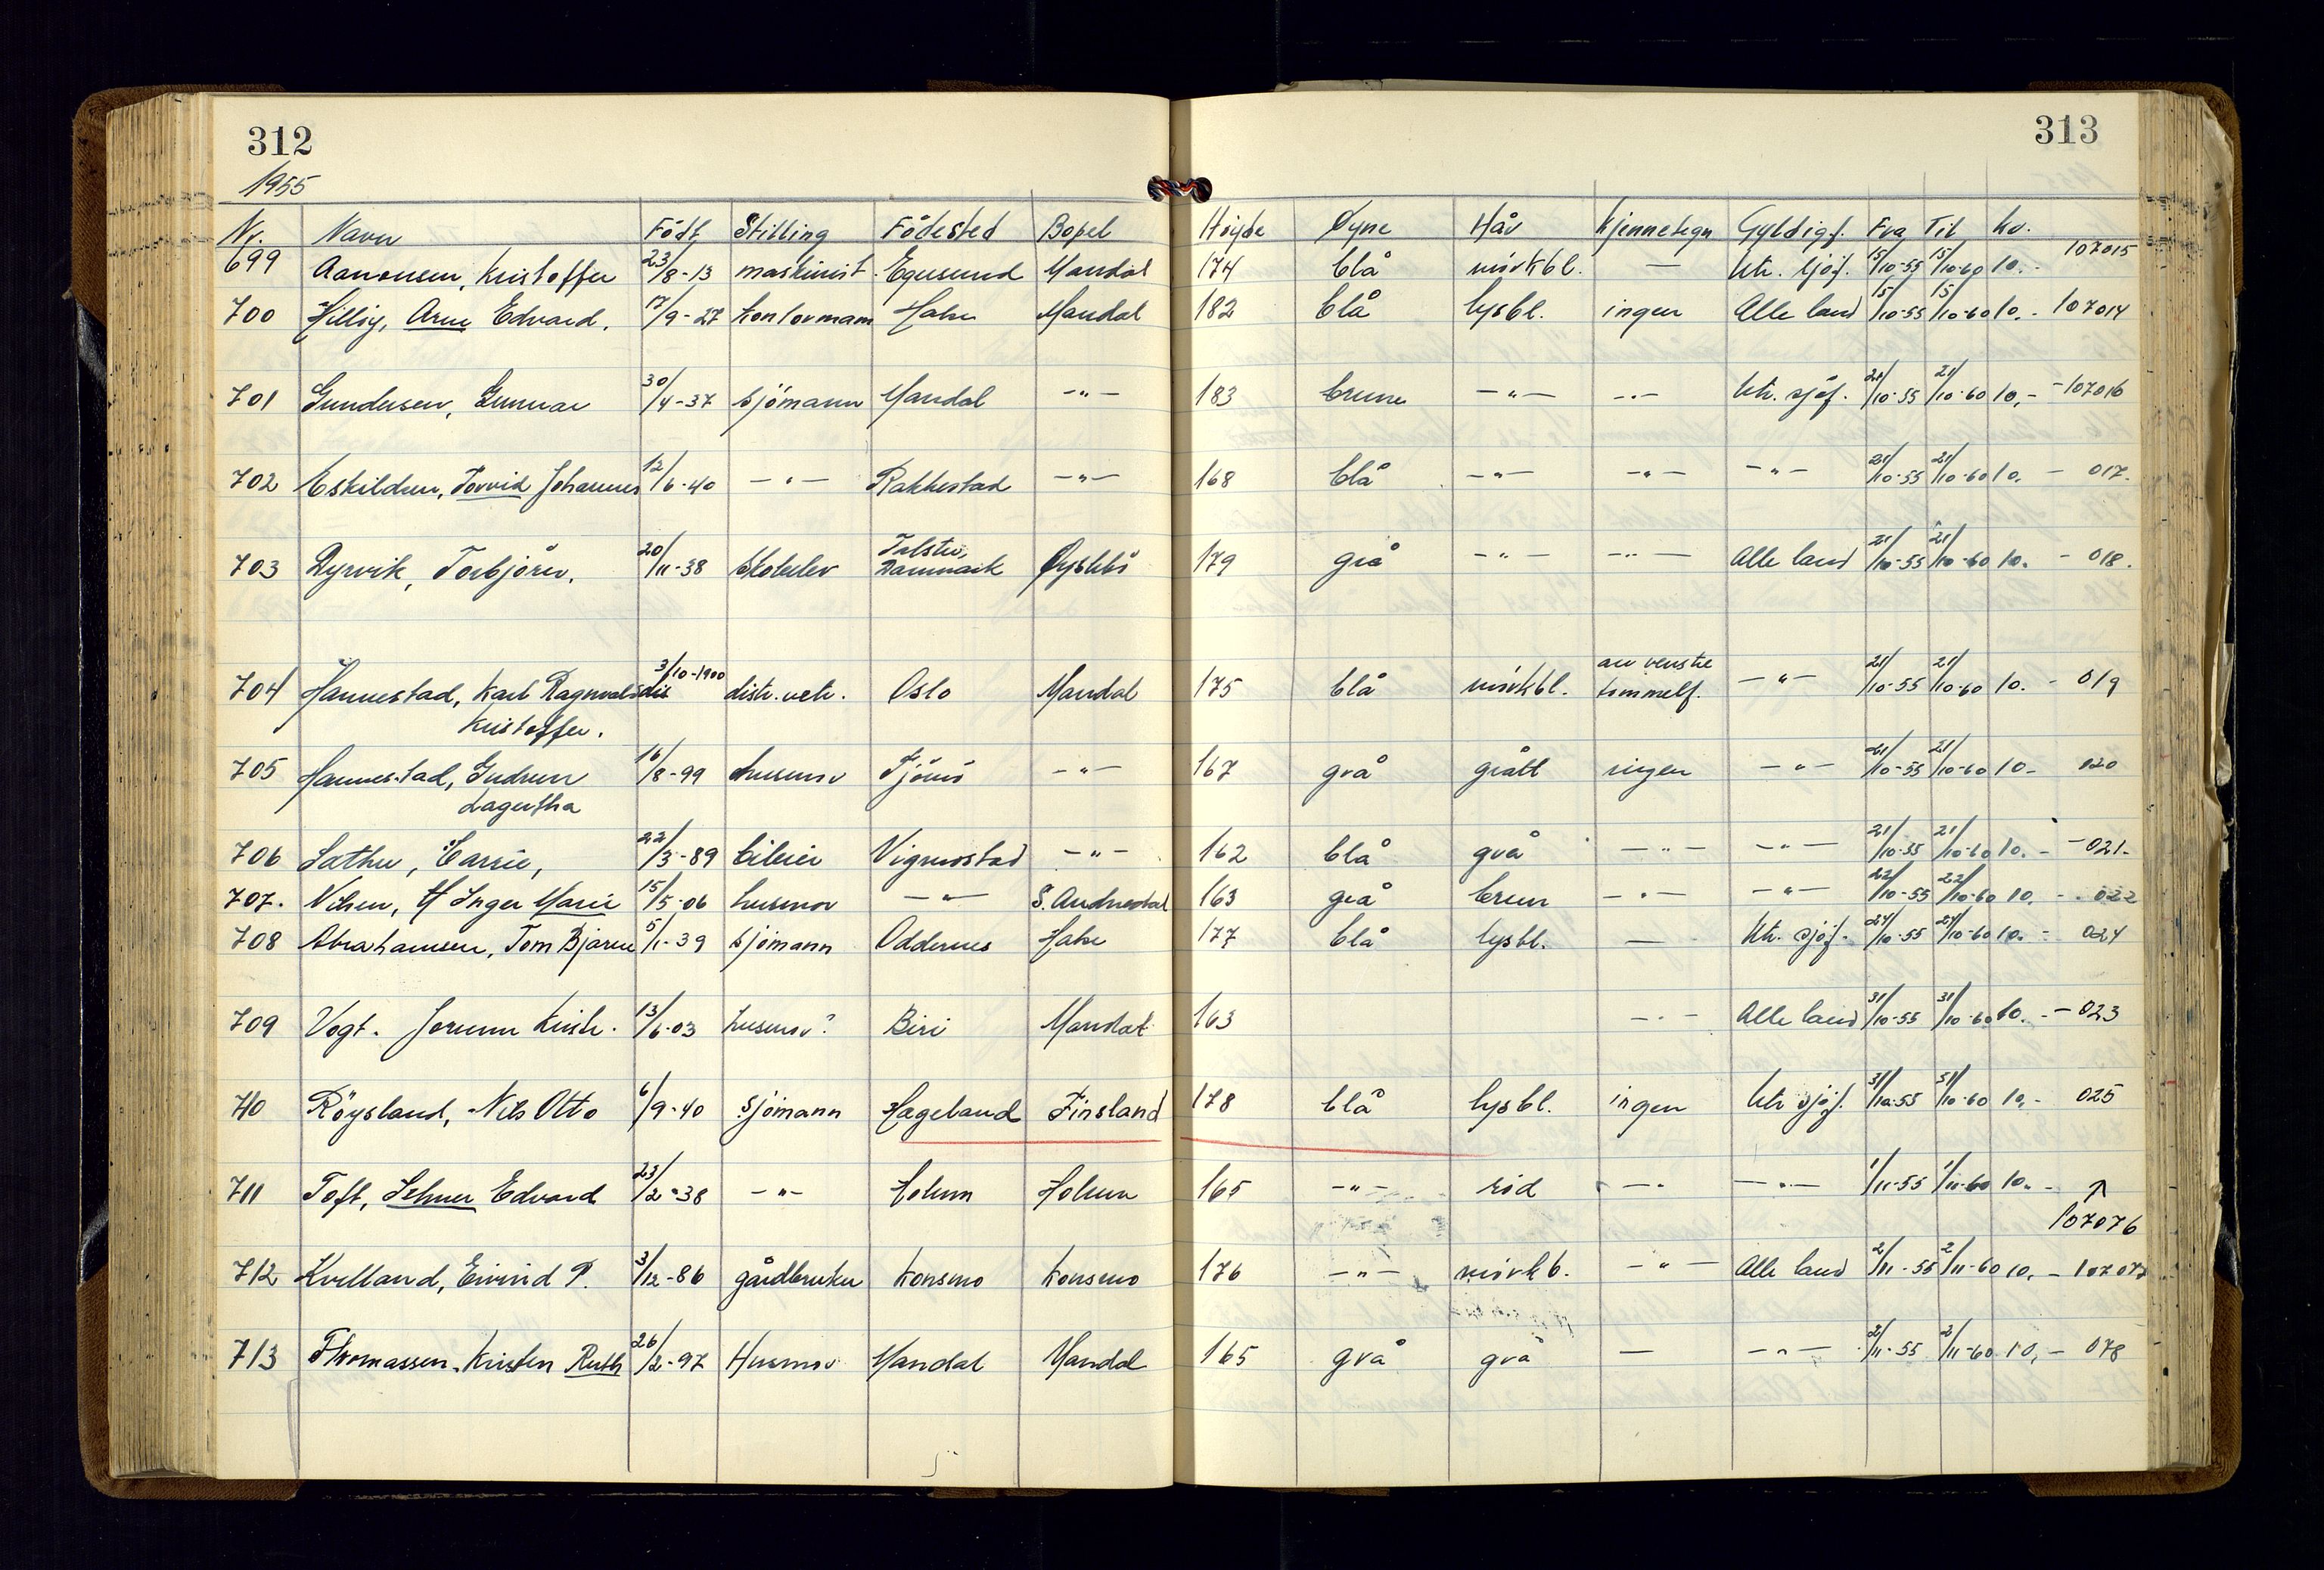 312
313
1955
Nr. Navn Födt Stilling Födested Bopel Höyde Øyne Hår Kjennetegn Gyldigf. Fra Til Kr.
699 Aanonsen, Kristoffer 23/8-13 maskinist Egersund Mandal 174 blå mörkbl. — Utr. sjöf. 15/10-55 15/10-60 10.- 107015
700 Hillig, Arne Edvard. 17/9-27 kontormann Halse Mandal 182 blå lysbl. ingen Alle land 15/10-55 15/10-60 10.- 107014
701 Gundersen, Gunnar 30/4-37 sjömann Mandal -"- 183 brune -"- -"- Utr. sjöf. 21/10-55 21/10-60 10,- -107016
702 Eskildsen, Torvid Johannes 12/6-40 -"- Rakkestad -"- 168 blå -"- -"- -"- 21/10-55 21/10-60 10. - 017.
703 Dyrvik, Torbjörn. 20/11-38 skoleelev Danmark Øyslebö 179 grå -"- -"- Alle land 21/10-55 21/10-60 10. - 018.
704 Hannestad, Karl Ragnvald 3/10-1900 distr. vetr. Oslo Mandal 175 blå mörkbl. arr venstre tommelf. -"- 21/10-55 21/10-60 10. - 019
Kristoffer.
705 Hannestad, Gudrun 16/8-99 husmor Tjömö -"- 167 grå grått ingen -"- 21/10-55 21/10-60 10- 020
Lagertha
706 Carrie, 22/3-89 bileier Vigmostad -"- 162 blå grå -"- -"- 21/10-55 21/10-60 10. - -021-
707. Nilsen, Inger Marie 15/5-06 husmor -"- S. Audnedal 163 grå brun -"- -"- 22/10-55 22/10-60 10. - 022
708 Abrahamsen, Tom Bjarne 5/1-39 sjömann Oddernes Halse 177 blå lysbl. — Utr. sjöf. 24/10-55 24/10-60 10. - 024
709 Vogt. Jorunn Kristr. 13/6-03 husmor? Biri Mandal 163 -"- Alle land 31/10-55 31/10-60 10. - -023
710 Röysland, Nils Otto 6/9-40 sjömann Hægeland Finsland 178 blå lysbl. ingen Utr sjöf. 31/10-55 31/10-60 10,- 025
711 Toft, Selmer Edvard 23/2-38 -"- Holum Holum 165 -"- röd -"- -"- 1/11-55 1/11-60 10. - ↑
107076
712 Kvelland, Eivind P. 3/12-86 gårdbruker Konsmo Konsmo 176 -"- mörkb. -"- Alle land 2/11-55 2/11-60 10. - 107077
713 Thomassen, Kirsten Ruth 26/2-97 Husmor Mandal Mandal 165 grå grå — -"- 2/11-55 2/11-60 10,- 078